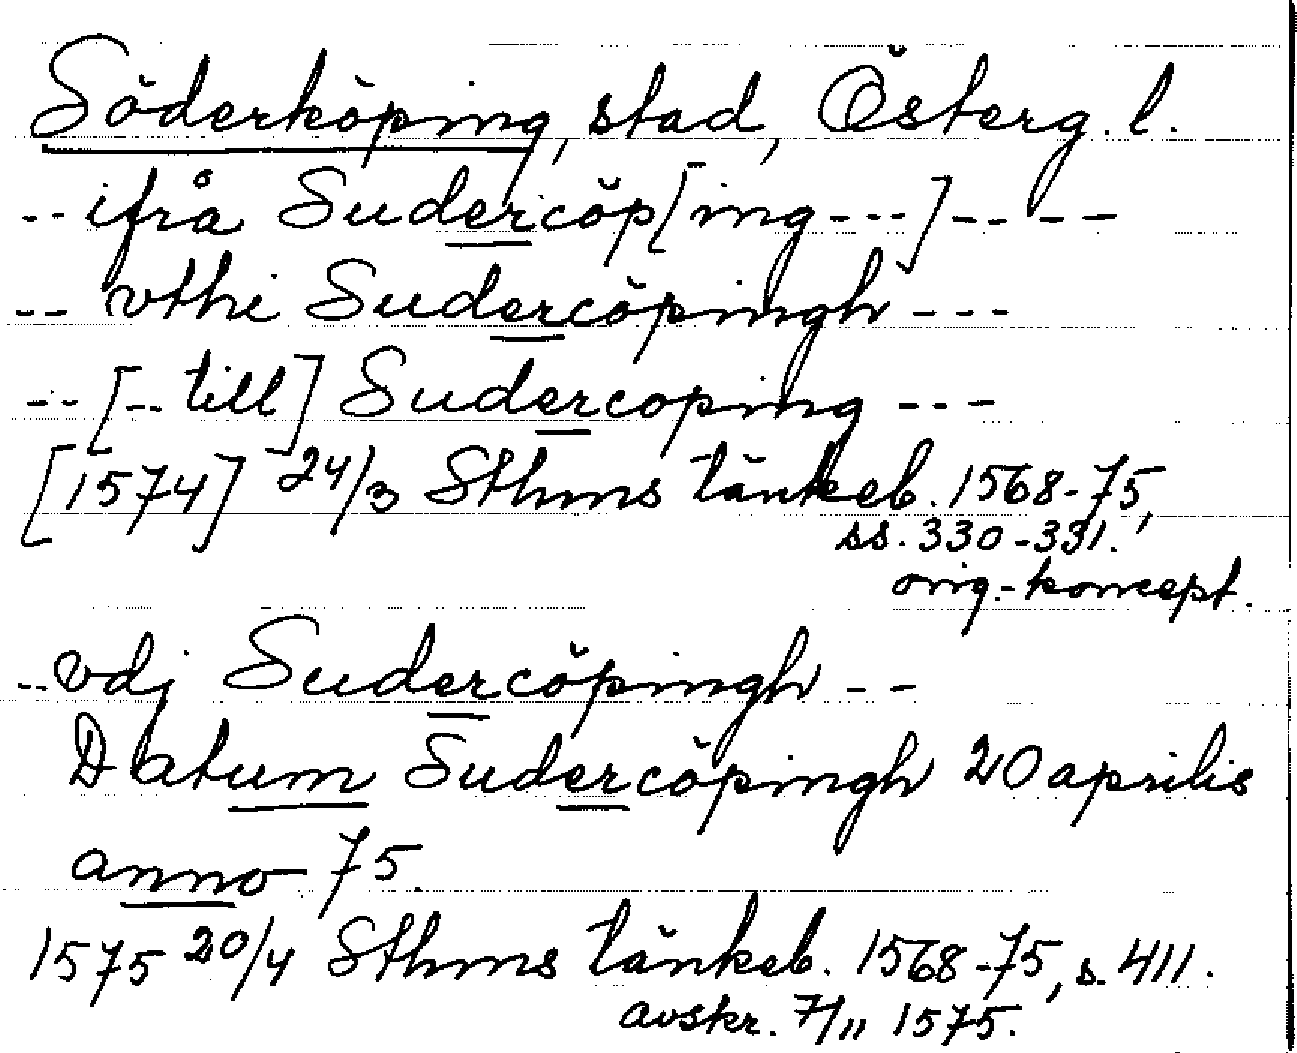 Söderköping, stad, Österg. l.
-- ifrå Sudercöp[ing ---] -- -- 
-- vthi Sudercöpingh ---
-- [-- till] Sudercoping ---
[1574] 24/3 Sthms tänkeb. 1568-75,
ss. 330-331.
orig.-koncept.
-- vdj Sudercöpingh --
Datum Sudercöpingh 20 aprilis
anno 75.
1575 20/4 Sthms tänkeb. 1568-75, s. 411.
avskr. 7/11 1575.